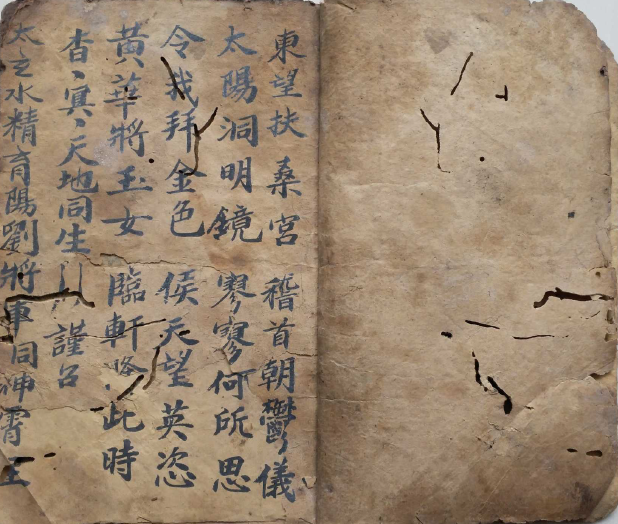 東望扶桑宮 稽首朝鬱儀
太陽洞明鏡 寥寥何所思
令我拜金色 侯天望英恣
黃華將玉女 臨軒降此時
杳、冥、天地同生 謹召
太玄水精育陽劉將軍同神霄玉